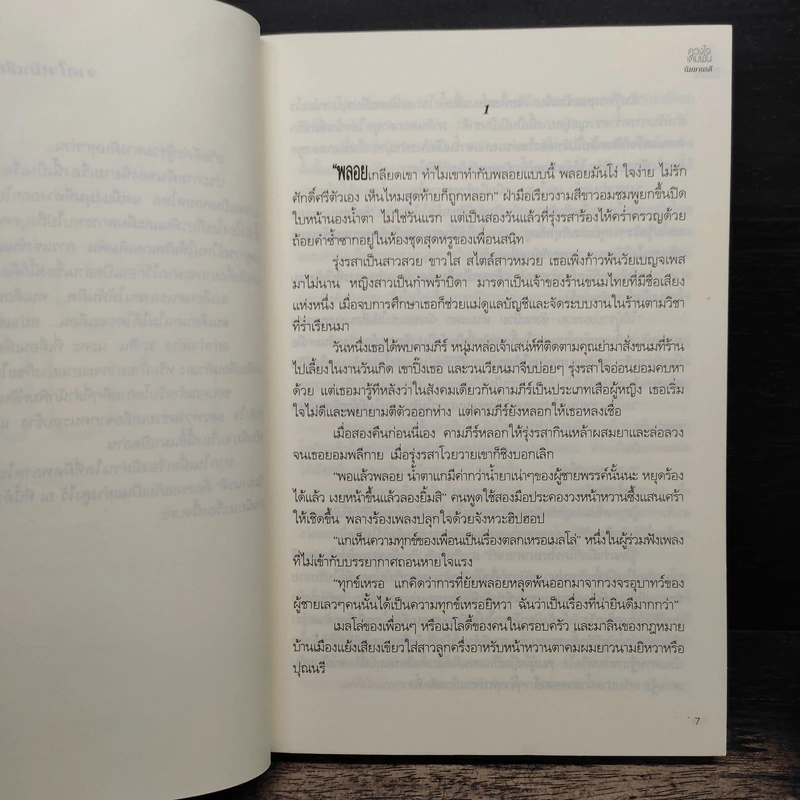 ดวงใจ
เติมฝัน
กันยามาส
1
"พลอยเกลียดเขา ทำไมเขาทำกับพลอยแบบนี้ พลอยมันโง่ ใจง่าย ไม่รัก
ศักดิ์ศรีตัวเอง เห็นไหมสุดท้ายก็ถูกหลอก" ฝ่ามือเรียวงามสีขาวอมชมพูยกขึ้นปิด
ใบหน้านองน้ำตา ไม่ใช่วันแรก แต่เป็นสองวันแล้วที่รุ่งรสาร้องไห้คร่ำครวญด้วย
ถ้อยคำซ้ำซากอยู่ในห้องชุดสุดหรูของเพื่อนสนิท
รุ่งรสาเป็นสาวสวย ขาวใส สไตล์สาวหมวย เธอเพิ่งก้าวพ้นวัยเบญจเพส
มาไม่นาน หญิงสาวเป็นกำพร้าบิดา มารดาเป็นเจ้าของร้านขนมไทยที่มีชื่อเสียง
แห่งหนึ่ง เมื่อจบการศึกษาเธอก็ช่วยแม่ดูแลบัญชีและจัดระบบงานในร้านตามวิชา
ที่ร่ำเรียนมา
วันหนึ่งเธอได้พบคามภีร์ หนุ่มหล่อเจ้าเสน่ห์ที่ติดตามคุณย่ามาสั่งขนมที่ร้าน
ไปเลี้ยงในงานวันเกิด เขาปิ๊งเธอ และวนเวียนมาจีบบ่อยๆ รุ่งรสาใจอ่อนยอมคบหา
ด้วย แต่เธอมารู้ทีหลังว่าในสังคมเดียวกันคามภีร์เป็นประเภทเสือผู้หญิง เธอเริ่ม
ใจไม่ดีและพยายามตีตัวออกห่าง แต่คามภีร์ยังหลอกให้เธอหลงเชื่อ
เมื่อสองคืนก่อนนี้เอง คามภีร์หลอกให้รุ่งรสากินเหล้าผสมยาและล่อลวง
จนเธอยอมพลีกาย เมื่อรุ่งรสาโวยวายเขาก็ชิงบอกเลิก
"พอแล้วพลอย น้ำตาแกมีค่ากว่าน้ำยาเน่าๆของผู้ชายพรรค์นั้นนะ หยุดร้อง
ได้แล้ว เงยหน้าขึ้นแล้วลองยิ้มสิ" คนพูดใช้สองมือประคองวงหน้าหวานซึ้งแสนเศร้า
ให้เชิดขึ้น พลางร้องเพลงปลุกใจด้วยจังหวะฮิปฮอป
"แกเห็นความทุกข์ของเพื่อนเป็นเรื่องตลกเหรอเมลโล่" หนึ่งในผู้ร่วมฟังเพลง
ที่ไม่เข้ากับบรรยากาศถอนหายใจแรง
"ทุกข์เหรอ แกคิดว่าการที่ยัยพลอยหลุดพ้นออกมาจากวงจรอุบาทว์ของ
ผู้ชายเลวๆคนนั้นได้เป็นความทุกข์เหรอยิหวา ฉันว่าเป็นเรื่องที่น่ายินดีมากกว่า"
เมลโล่ของเพื่อนๆ หรือเมโลดี้ของคนในครอบครัว และมาลินของกฎหมาย
บ้านเมืองแย้งเสียงเขียวใส่สาวลูกครึ่งอาหรับหน้าหวานตาคมผมยาวนามยิหวาหรือ
ปุณนรี
7